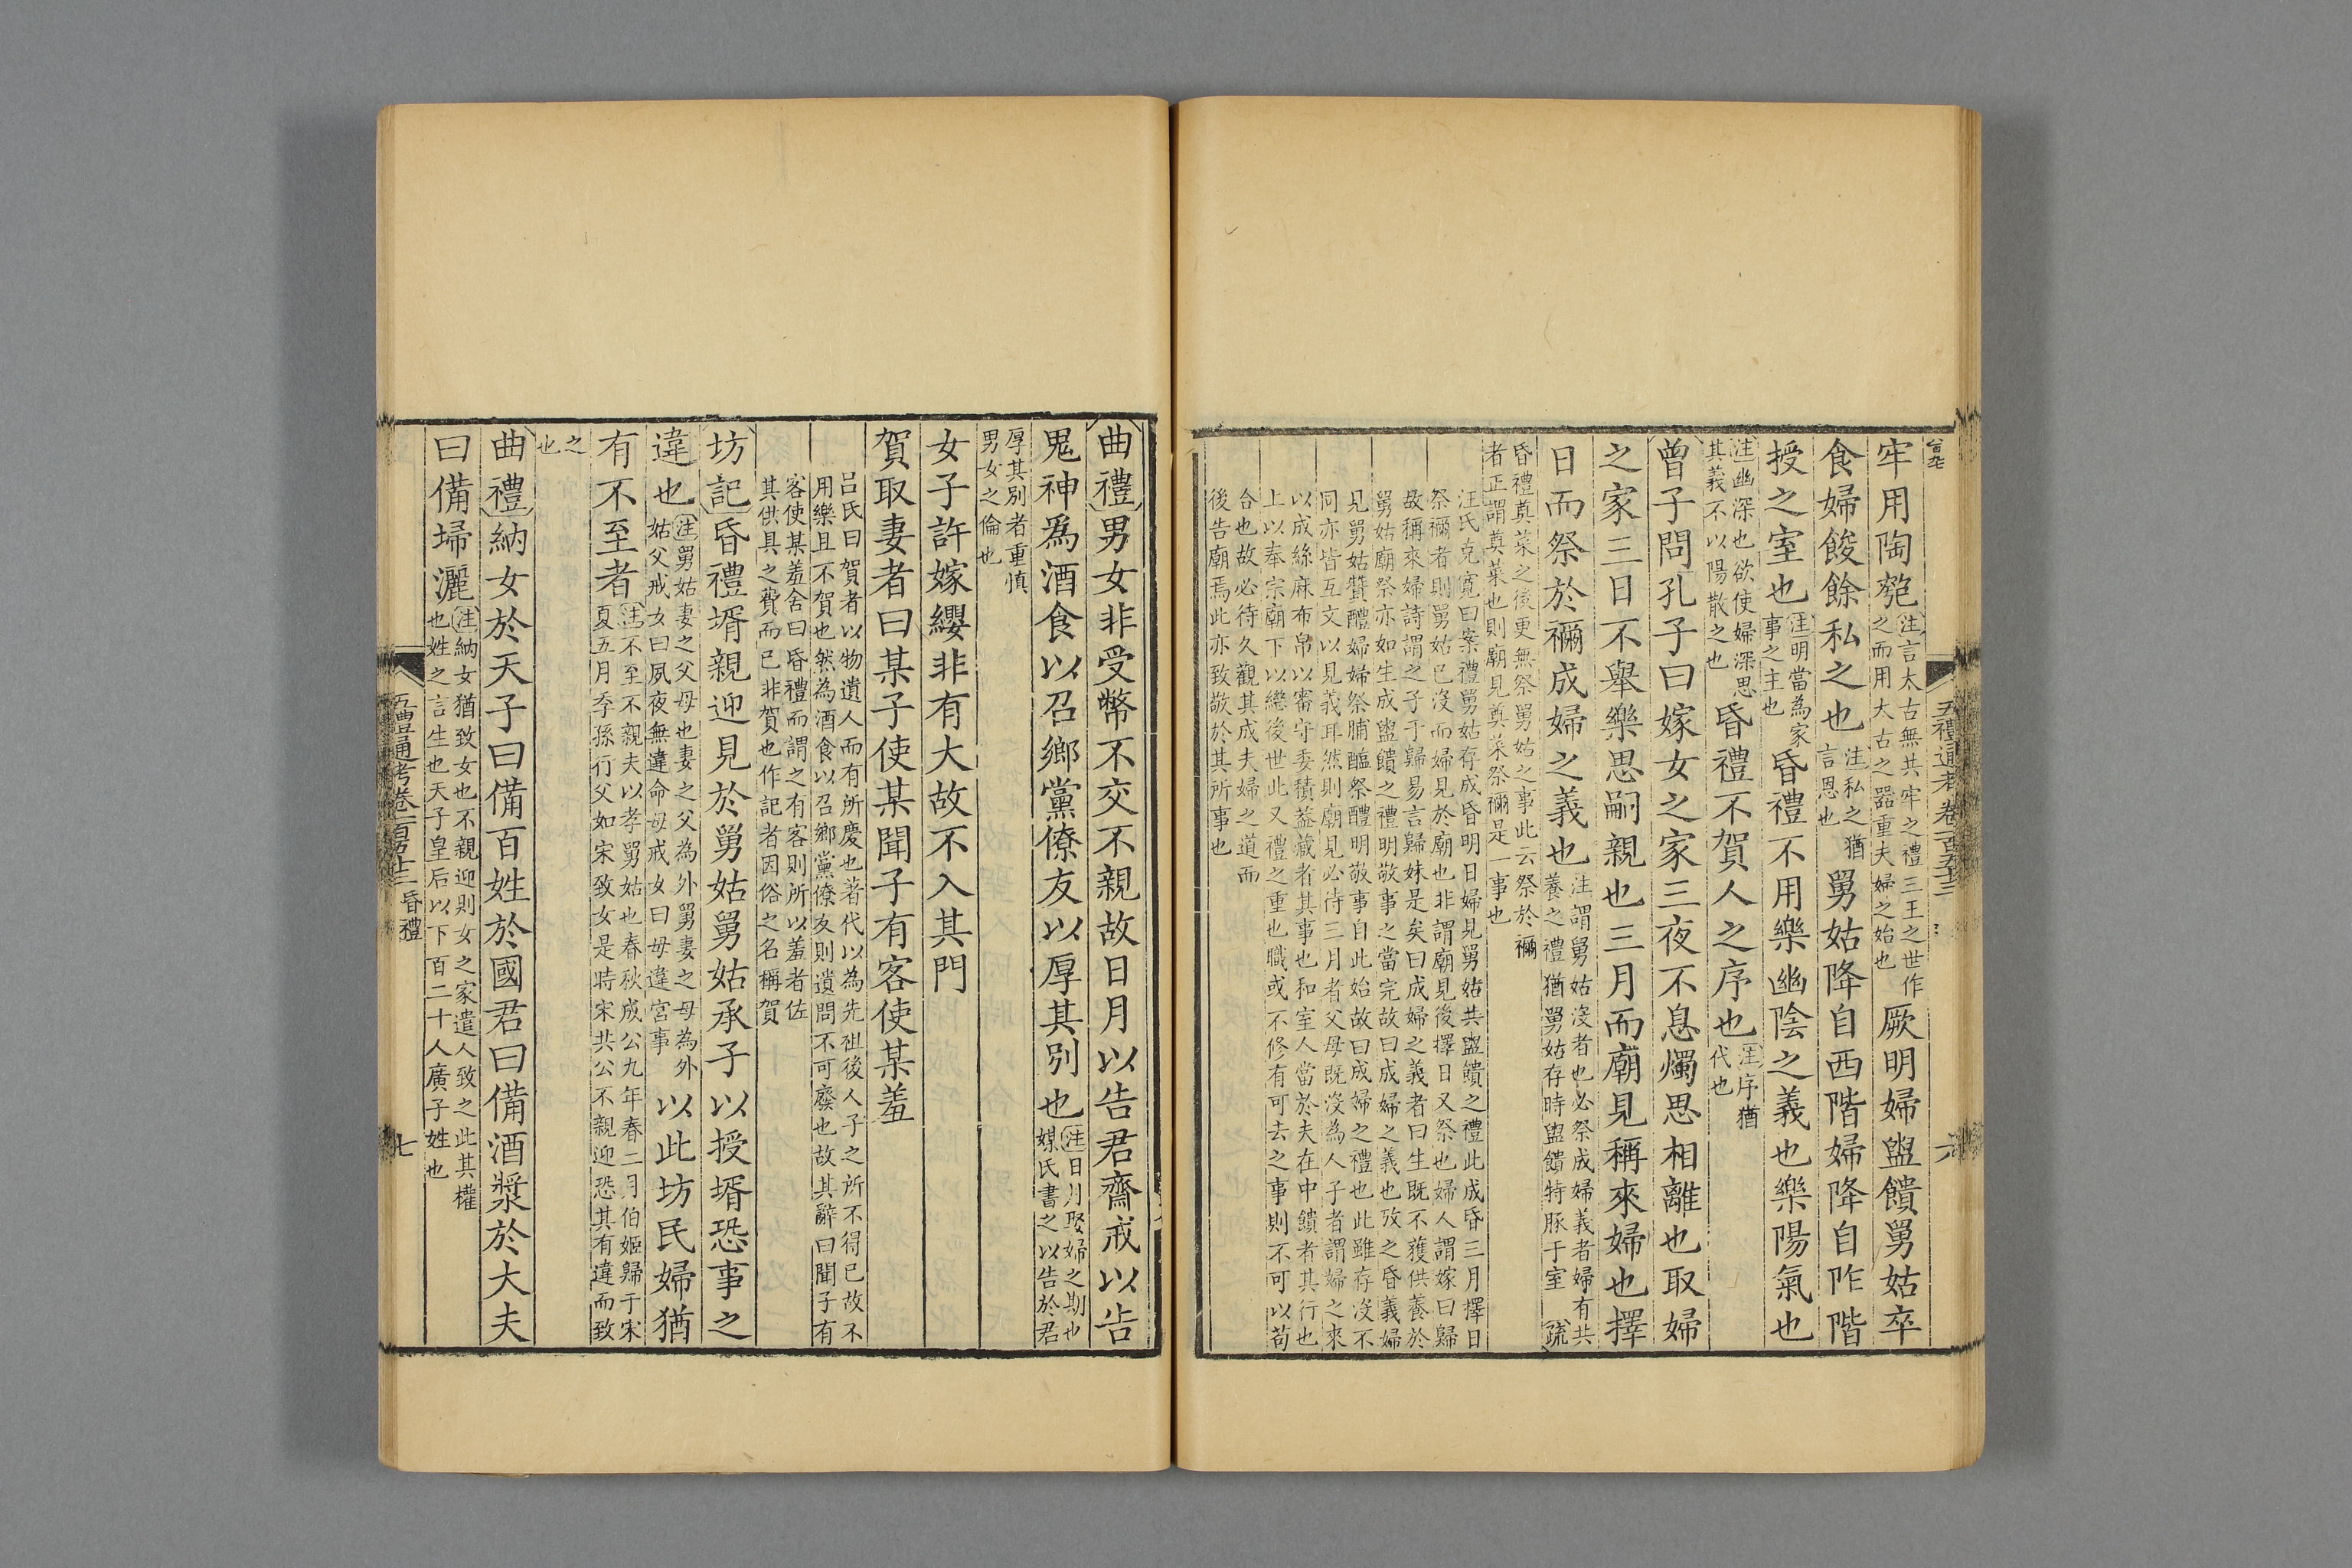 五禮通考卷一百五十二
六
牢用陶匏注言太古無共牢之禮三王之世作之而用大古之器重夫婦之始也厥明婦盥饋舅姑卒
食婦餕餘私之也注私之猶言恩也舅姑降自西階婦降自阼階
授之室也注明當為家事之主也昏禮不用樂幽陰之義也樂陽氣也
注幽深也欲使婦深思其義不以陽散之也昏禮不賀人之序也注序猶代也
曾子問孔子曰嫁女之家三夜不息燭思相離也取婦
之家三日不舉樂思嗣親也三月而廟見稱來婦也擇
日而祭於禰成婦之義也注謂舅姑沒者也必祭成婦義者婦有共養之禮猶舅姑存時盥饋特豚于室疏
昏禮奠菜之後更無祭舅姑之事此云祭於禰者正謂奠菜也則廟見奠菜祭禰是一事也
汪氏克寬曰案禮舅姑存成昏明日婦見舅姑共盥饋之禮此成昏三月擇日
祭禰者則舅姑已沒而婦見於廟也非謂廟見後擇日又祭也婦人謂嫁曰歸
故稱來婦詩謂之子于歸易言歸妹是矣曰成婦之義者曰生既不獲供養於
舅姑廟祭亦如生成盥饋之禮明敬事之當完故曰成婦之義也攷之昏義婦
見舅姑贊醴婦婦祭脯醢祭醴明敬事自此始故曰成婦之禮也此雖存沒不
同亦皆互文以見義耳然則廟見必待三月者父母既沒為人子者謂婦之來
以成絲麻布帛以審守委積蓋藏者其事也和室人當於夫在中饋者其行也
上以奉宗廟下以繼後世此又禮之重也職或不修有可去之事則不可以苟
合也故必待久觀其成夫婦之道而
後告廟焉此亦致敬於其所事也
曲禮男女非受幣不交不親故日月以告君齋戒以告
鬼神爲酒食以召鄉黨僚友以厚其別也注日月娶婦之期也媒氏書之以告於君
厚其別者重慎男女之倫也
女子許嫁纓非有大故不入其門
賀取妻者曰某子使某聞子有客使某羞
呂氏曰賀者以物遺人而有所慶也著代以為先祖後人子之所不得已故不
用樂且不賀也然為酒食以召鄉黨僚友則遺問不可廢也故其辭曰聞子有
客使某羞舍曰昏禮而謂之有客則所以羞者佐
其供具之費而已非賀也作記者因俗之名稱賀
坊記昏禮壻親迎見於舅姑舅姑承子以授壻恐事之
違也注舅姑妻之父母也妻之父為外舅妻之母為外姑父戒女曰夙夜無違命母戒女曰毋違宮事以此坊民婦猶
有不至者注不至不親夫以孝舅姑也春秋成公九年春二月伯姬歸于宋夏五月季孫行父如宋致女是時宋共公不親迎恐其有違而致
之也
曲禮納女於天子曰備百姓於國君曰備酒漿於大夫
曰備埽灑注納女猶致女也不親迎則女之家遣人致之此其權也姓之言生也天子皇后以下百二十人廣子姓也
五禮通考卷一百五十二 昏禮
七